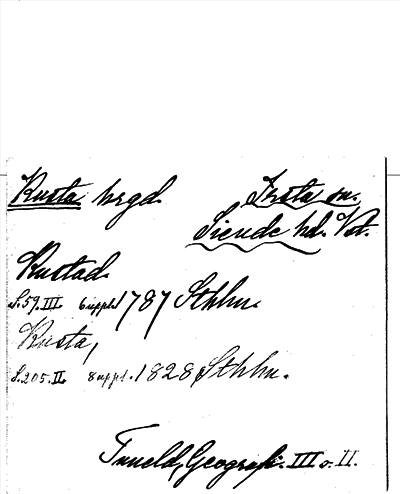 Kusta hrgd. Irsta sn.
Siende hd. Vst.
Kustad.
S. 59. III. 6 uppl. 1787 Sthlm.
Kusta,
S. 205. II. 8 uppl. 1828 Sthlm.
Tuneld, Geografi. III o. II.